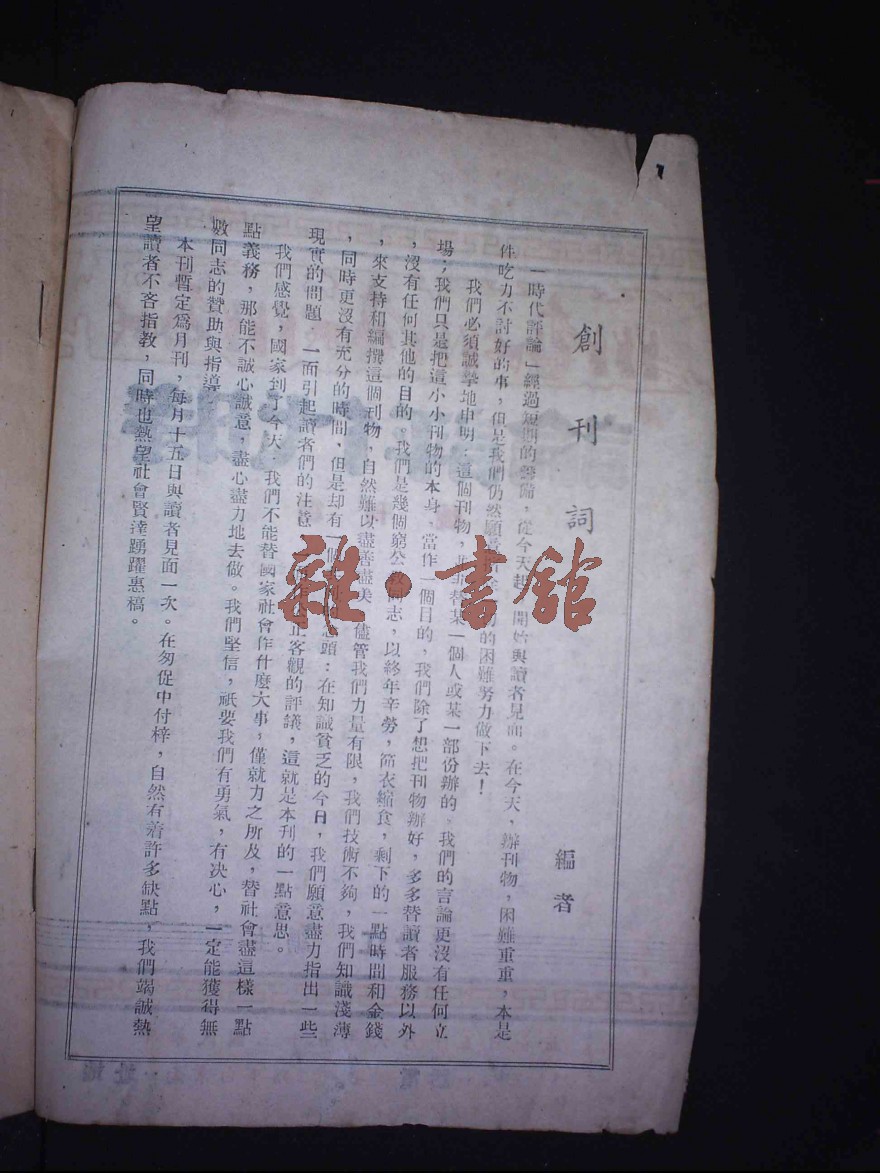 創刊詞
編者
「時代評論」經過短期的籌備，從今天起，開始與讀者見面。在今天，辦刊物，困難重重，本是
件吃力不討好的事，但是我們仍然願意的困難努力做下去！
我們必須誠摯地申明：這個刊物，並非替某一個人或某一部份辦的。我們的言論更沒有任何立
場；我們只是把這小小刊物的本身，當作一個目的，我們除了想把刊物辦好，多多替讀者服務以外
，沒有任何其他的目的。我們是幾個窮公教同志，以終年辛勞，節衣縮食，剩下的一點時間和金錢
，來支持和編撰這個刊物，自然難以盡善盡美，儘管我們力量有限，我們技術不夠，我們知識淺薄
，同時更沒有充分的時間，但是却有一個念頭：在知識貧乏的今日，我們願意盡力指出一些
現實的問題，一面引起讀者們的注意，正客觀的評議，這就是本刊的一點意思。
我們感覺，國家到了今天，我們不能替國家社會作什麼大事，僅就力之所及，替社會盡這樣一點
點義務，那能不誠心誠意，盡心盡力地去做。我們堅信，祇要我們有勇氣，有決心，一定能獲得無
數同志的贊助與指導。
本刊暫定爲月刊，每月十五日與讀者見面一次。在匆促中付梓，自然有着許多缺點，我們竭誠熱
望讀者不吝指教，同時也熱望社會賢達踴躍惠稿。
雜·書館